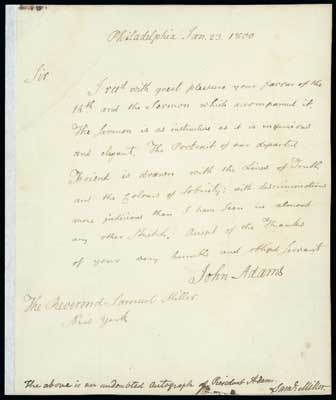 Philadelphia Jan. 23. 1800
Sir
I recd with great pleasure your favour of the
16th and the Sermon which accompanied it.
The Sermon is as instructive as it is ingenious
and elegant. The Portrait of our departed
Friend is drawn with the Lines of Truth
and the Colours of Sobriety: with discriminations
more judicious than I have seen in almost
any other Sketch. Accept of the Thanks
of your very humble and obliged Servant
John Adams
The Reverend Samuel Miller
New York
The above is an undoubted autograph of President Adams.
Saml Miller.